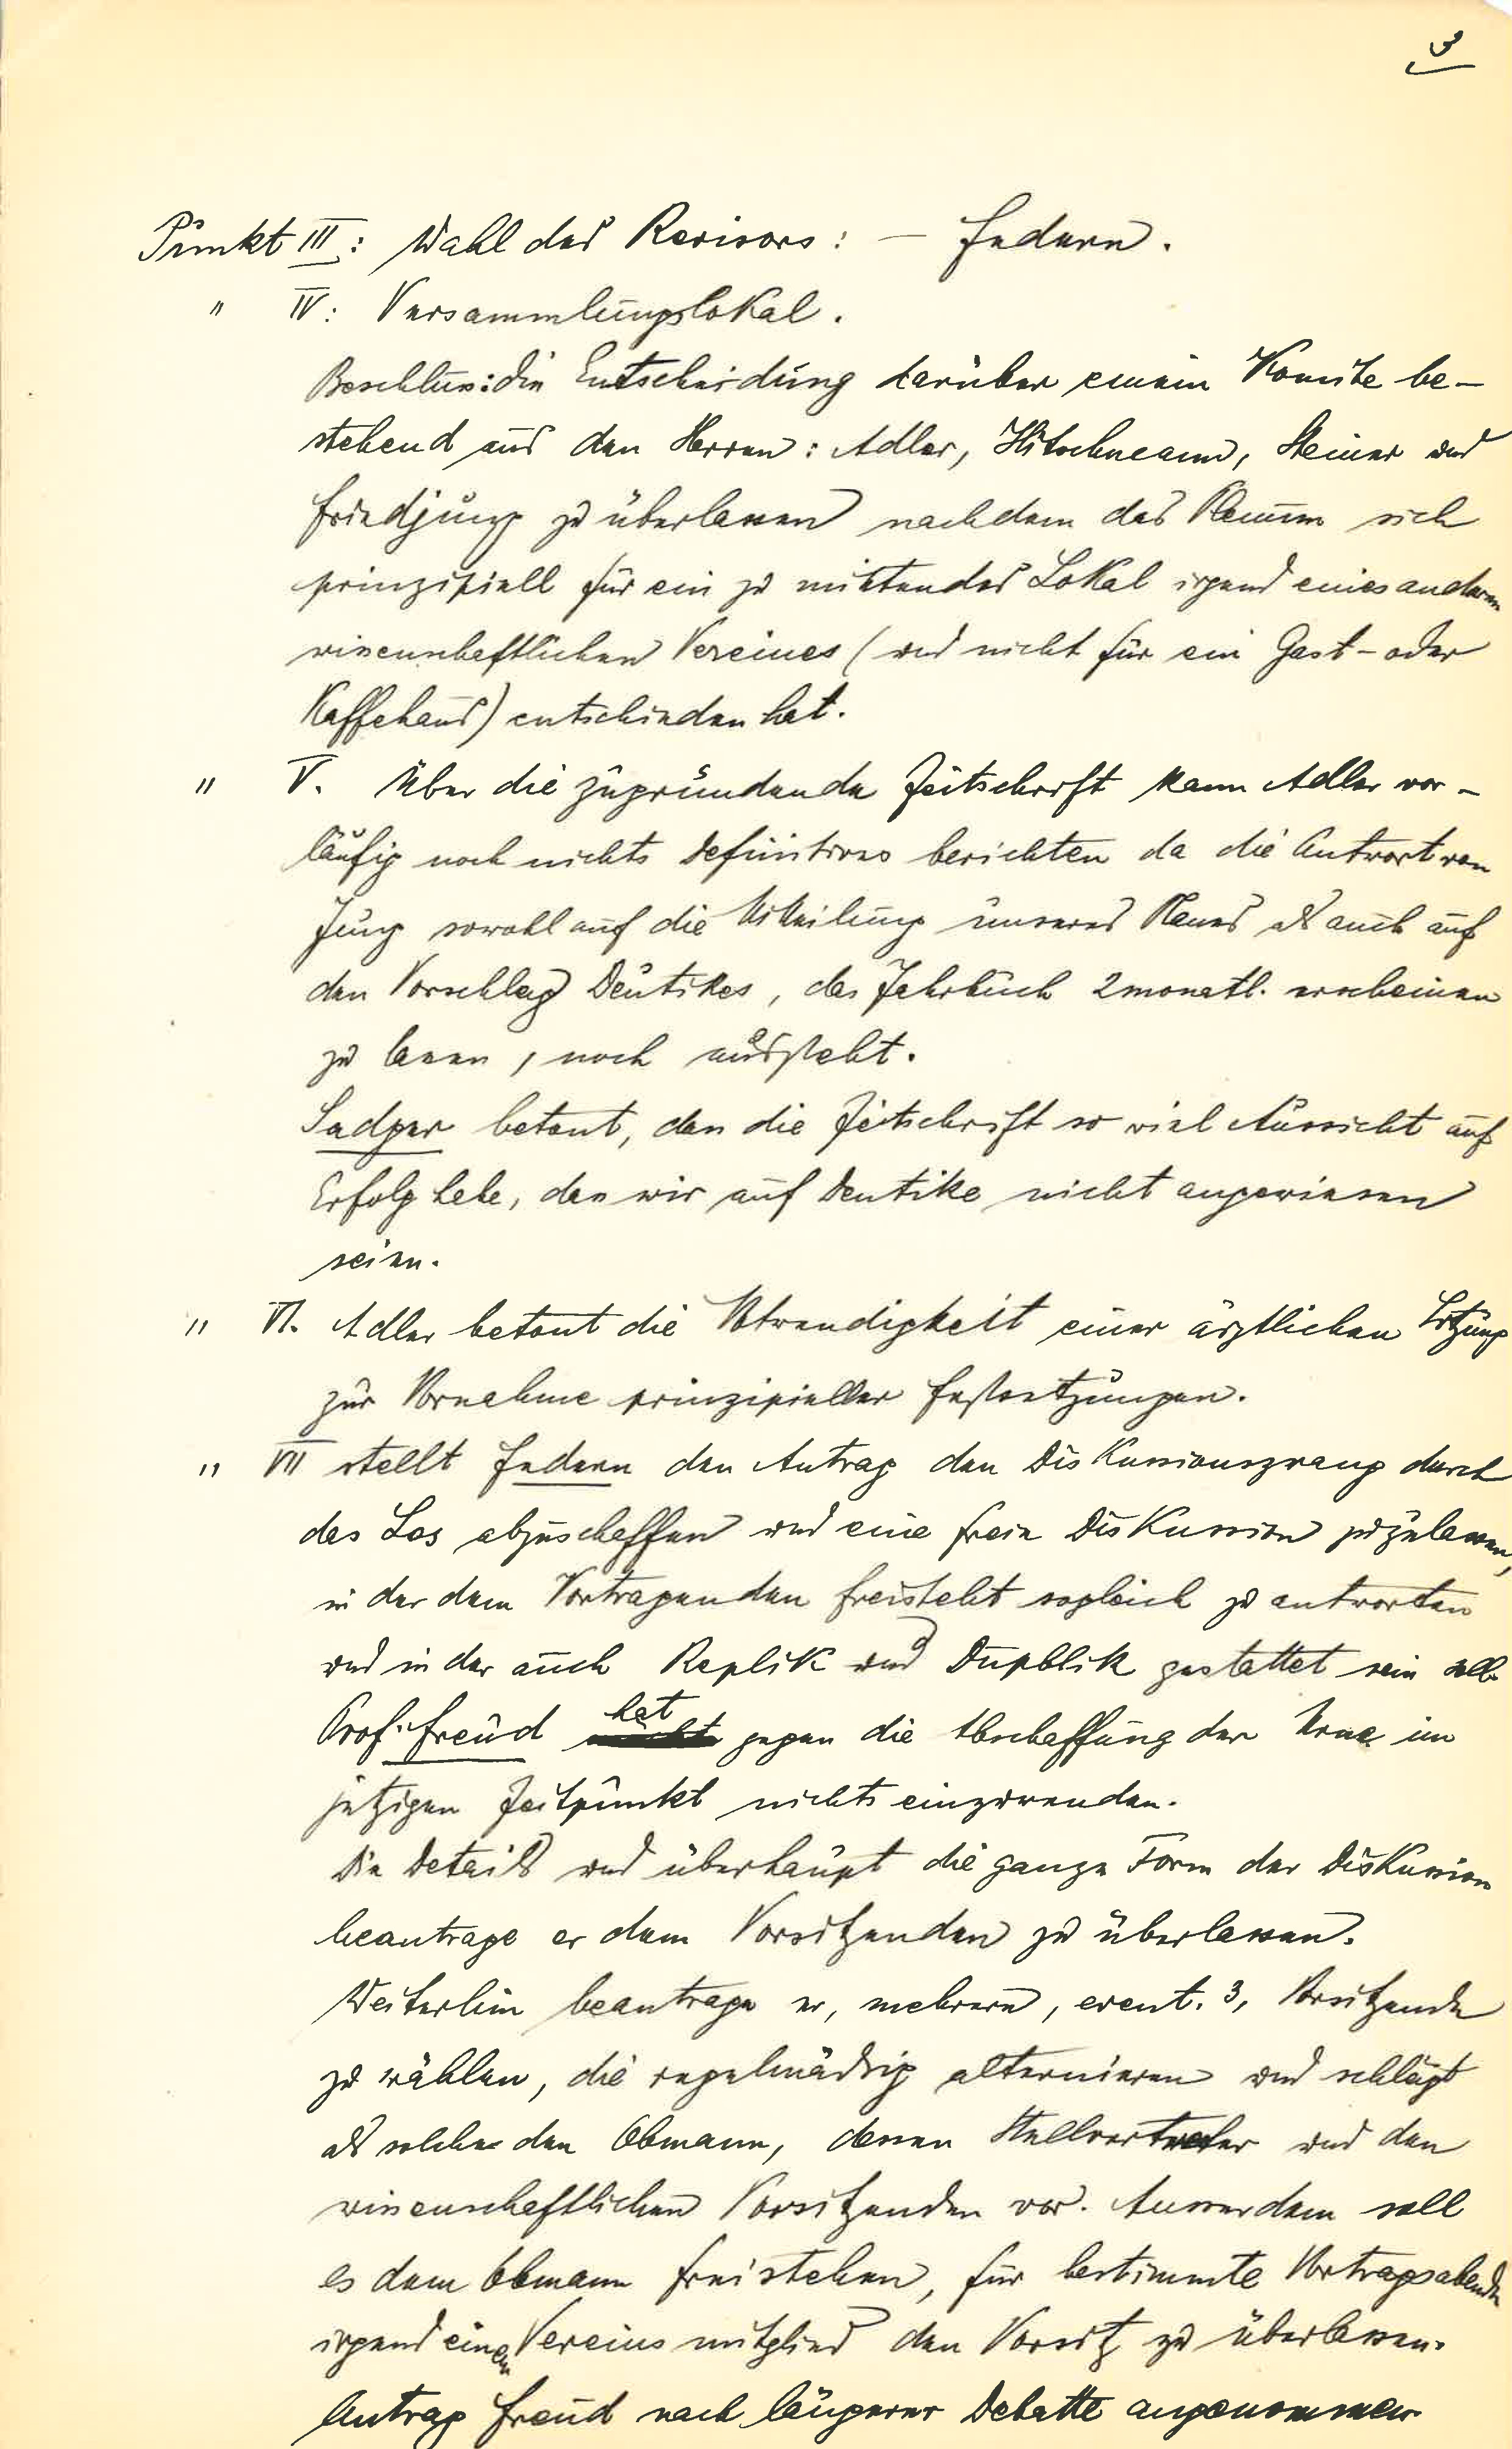 3
Punkt III: Wahl des Revisors: — Federn.
" IV: Versammlungslokal.
Beschluss: die Entscheidung darüber einem Komite be-
stehend aus den Herren: Adler, Hitschmann, Steiner und
Friedjung zu überlassen nachdem das Plenum sich
prinzipiell für ein zu mietendes Lokal irgend eines anderen
wissenschaftlichen Vereines (und nicht für ein Gast- oder
Kaffehaus) entschieden hat.
" V. Über die zugründende Zeitschrift kann Adler vor-
läufig noch nichts definitives berichten da die Antwort von
Jung sowohl auf die Mitteilung unseres Planes als auch auf
den Vorschlag Deutikes, das Jahrbuch 2monatl. erscheinen
zu lassen, noch aussteht.
Sadger betont, dass die Zeitschrift so viel Aussicht auf
Erfolg habe, dass wir auf Deutike nicht angewiesen
seien.
" VI. Adler betont die Notwendigkeit einer ärztlichen Sitzung
zur Vornahme prinzipieller Festsetzungen.
" VII stellt Federn den Antrag den Diskussionszwang durch
das Los abzuschaffen und eine freie Diskussion zuzulassen,
in der dem Vortragenden freisteht sogleich zu antworten
und in der auch Replik und Dupblik gestattet sein soll.
Prof. Freud hat gegen die Abschaffung der Urne im
jetzigen Zeitpunkt nichts einzuwenden.
Die Details und überhaupt die ganze Form der Diskussion
beantrage er dem Vorsitzenden zu überlassen.
Weiterhin beantrage er, mehrere, event. 3, Vorsitzende
zu wählen, die regelmässig alternieren und schlägt
als solche den Obmann, dessen Stellvertreter und den
wissenschaftlichen Vorsitzenden vor. Ausserdem soll
es dem Obmann freistehen, für bestimmte Vortragsabende
irgend einem Vereinsmitglied den Vorsitz zu überlassen.
Antrag Freud nach längerer Debatte angenommen